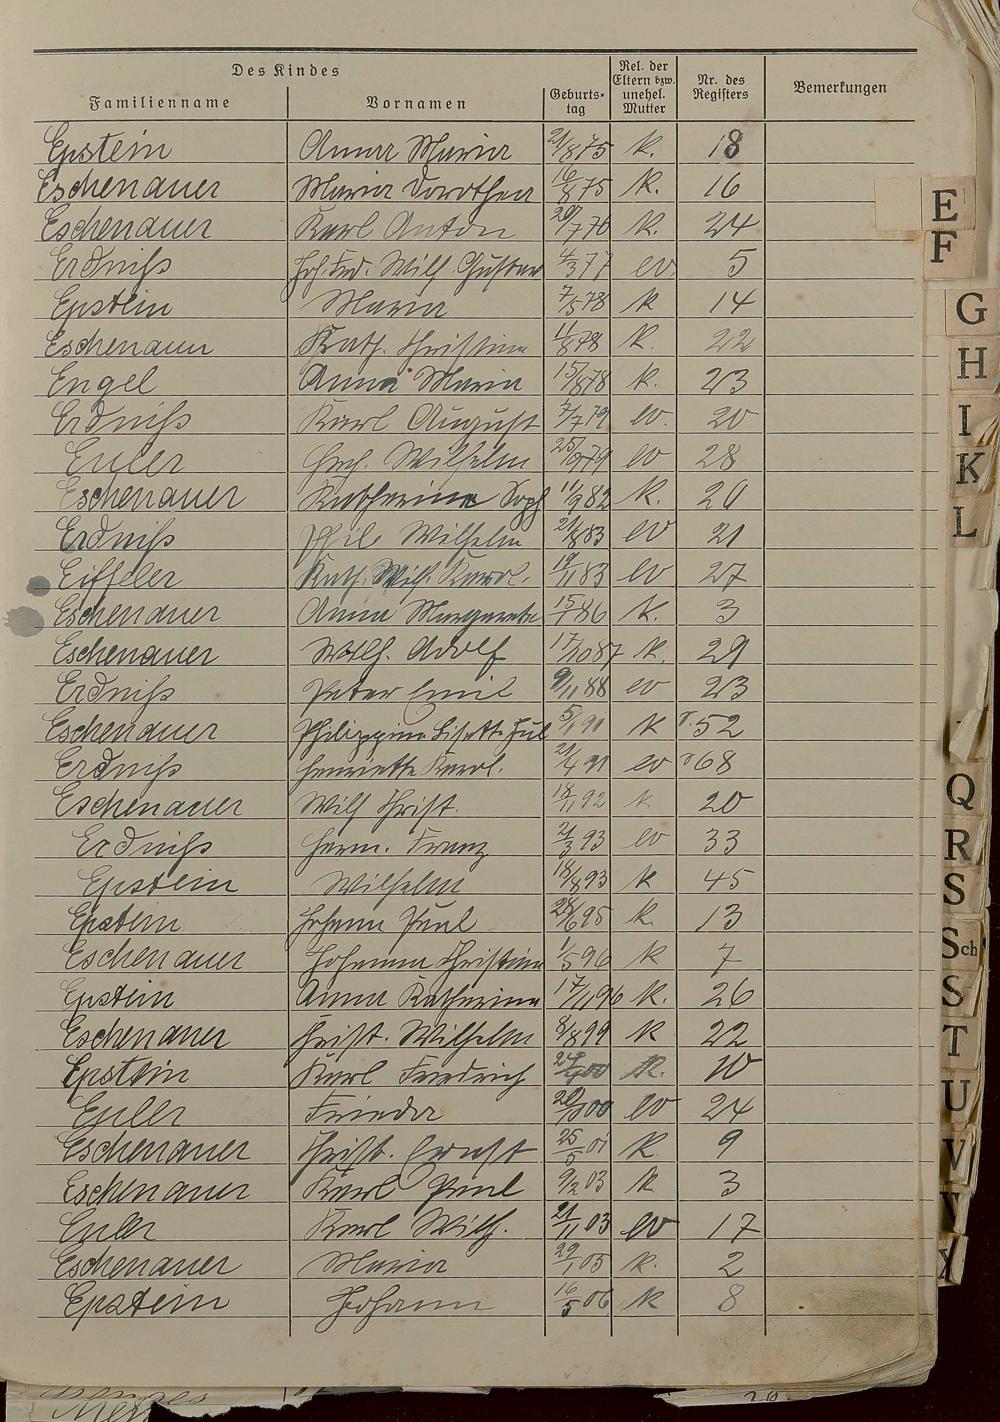 Des Kindes
Familienname Vornamen Geburts-tag Rel. der Eltern bzw. unehel. Mutter Nr. des Registers Bemerkungen
Epstein Anna Maria 21/8 75 k. 18
Eschenauer Maria Dorothea 16/8 75 k. 16
Eschenauer Karl Anton 20/7 76 k. 24
Erdniß Joh. Frd. Wilh. Gustav 4/3 77 ev. 5
Epstein Maria 7/5 78 k 14
Eschenauer Kath. Christina 11/8 78 k. 22
Engel Anna Maria 15/8 78 k. 23
Erdniß Karl August 7/7 79 ev. 20
Euler Hch. Wilhelm 79 ev 28
Eschenauer Katharina Soph 11/9 82 k. 20
Erdniß Phil. Wilhelm 21/8 83 ev 21
Eiffeler Kath. Wilh. Karol. 83 ev 27
Eschenauer Anna Margareta 15/7 86 k. 3
Eschenauer Wilh. Adolf 17/10 87 k. 29
Erdniß Peter Emil 9/11 88 ev 23
Eschenauer Philippina Lisette Jul 5/1 91 k 52
Erdniß Henriette Karol. 21/4 91 ev 68
Eschenauer Wilh Christ. 18/11 92 k 20
Erdniß Herm. Franz 2/3 93 ev 33
Epstein Wilhelm 18/8 93 k 45
Epstein Johann Paul 28/6 95 k. 13
Eschenauer Johanna Christina 1/5 96 k 7
Epstein Anna Katharina 17/11 96 k. 26
Eschenauer Christ. Wilhelm 8/8 99 k 22
Epstein Karl Friedrich 00 k. 10
Euler Frieda 00 ev 24
Eschenauer Christ. Ernst 25/5 01 k. 9
Eschenauer Karl Paul 9/2 03 k 3
Euler Karl Wilh. 21/11 03 ev 17
Eschenauer Maria 29/1 05 k. 2
Epstein Johann 16/5 06 k 8
E
F
G
H
I
K
L
Q
R
S
Sch
S
T
U
V